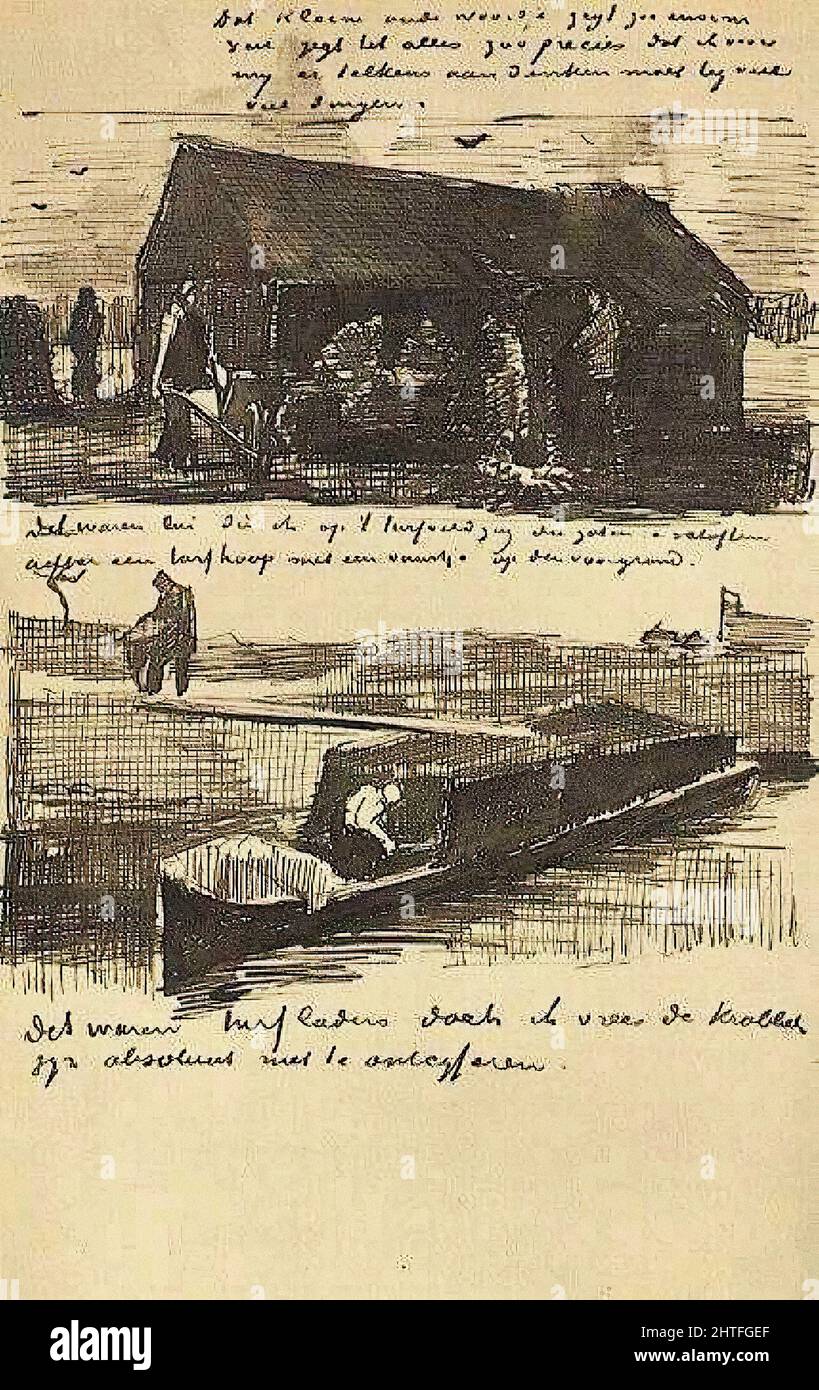 Dat kleine oude woordje zegt zoo enorm
veel zegt het alles zoo precies dat ik voor
my er telkens aan denken moet by veel
veel dingen.
Det waren lui die ik op 't turfveld zag die zaten
achter een turfhoop met een vuurtje op den voorgrond.
Det waren turfladers doch ik vrees de krabbels
zyn absoluut niet te ontcyferen.
alamy
Image ID: 2HTFGEF
www.alamy.com